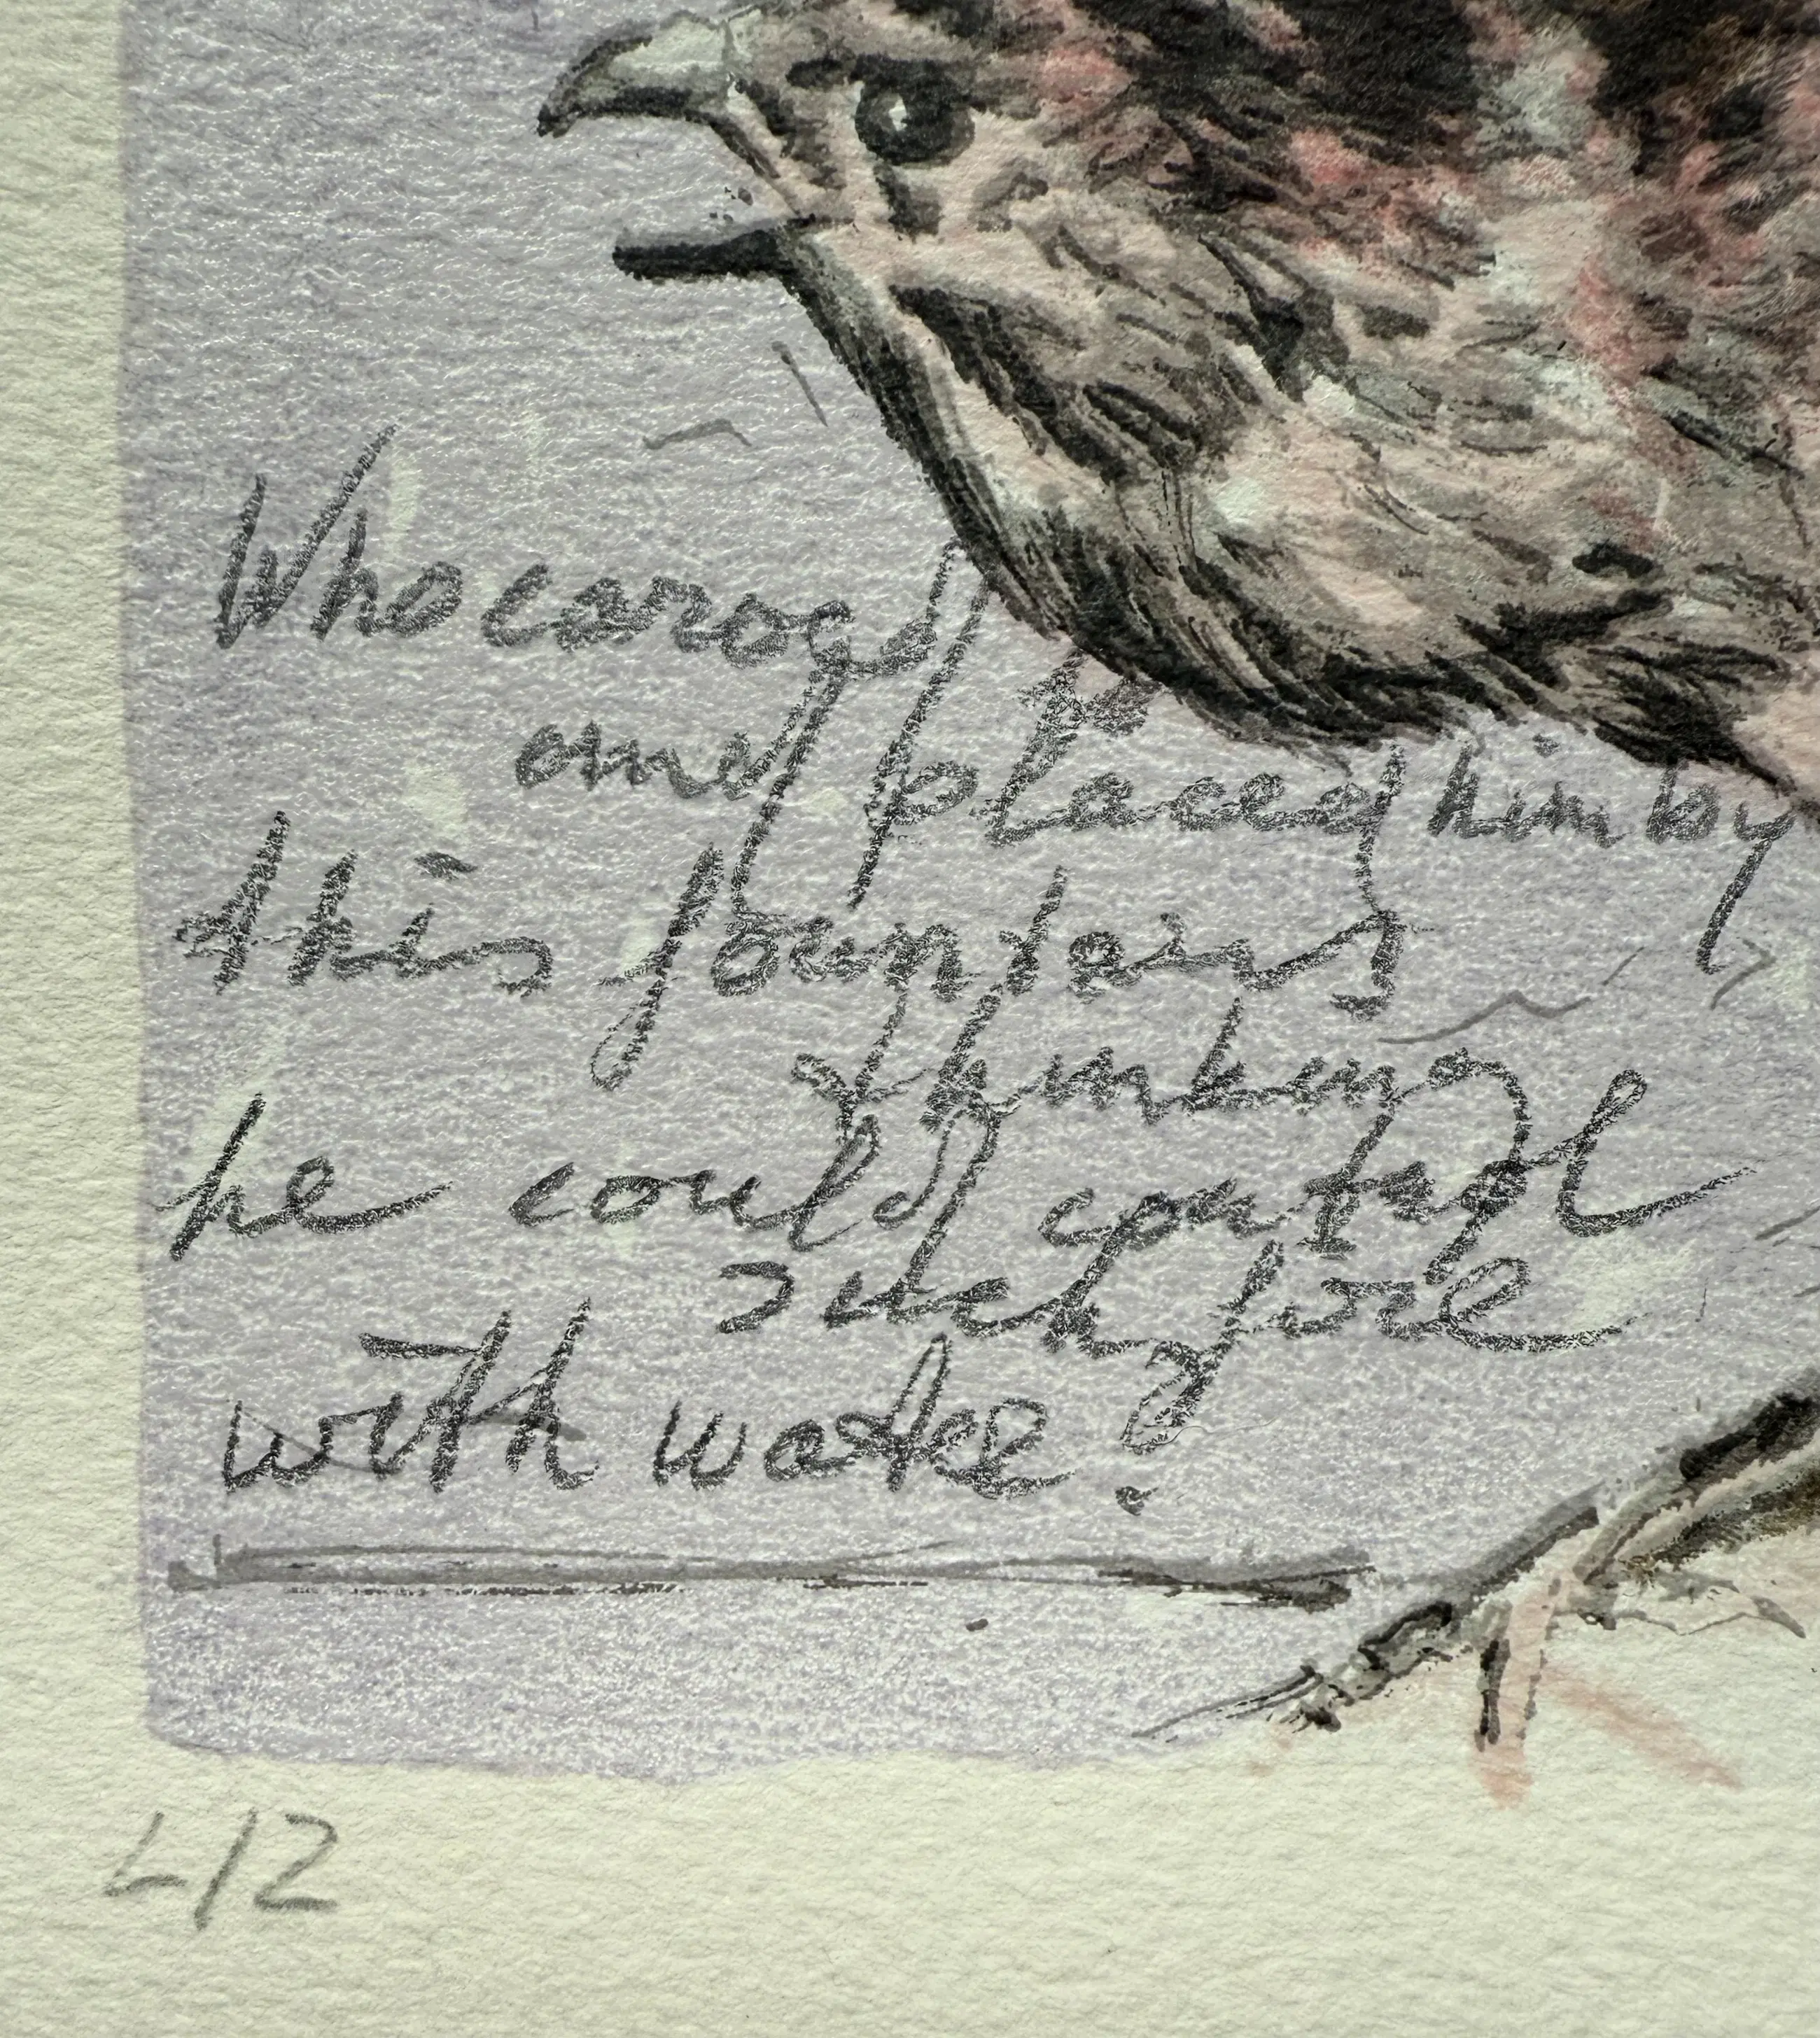 Who carved
and placed him by
this fountain,
thinking
he could control
such fire
with water?
L/2